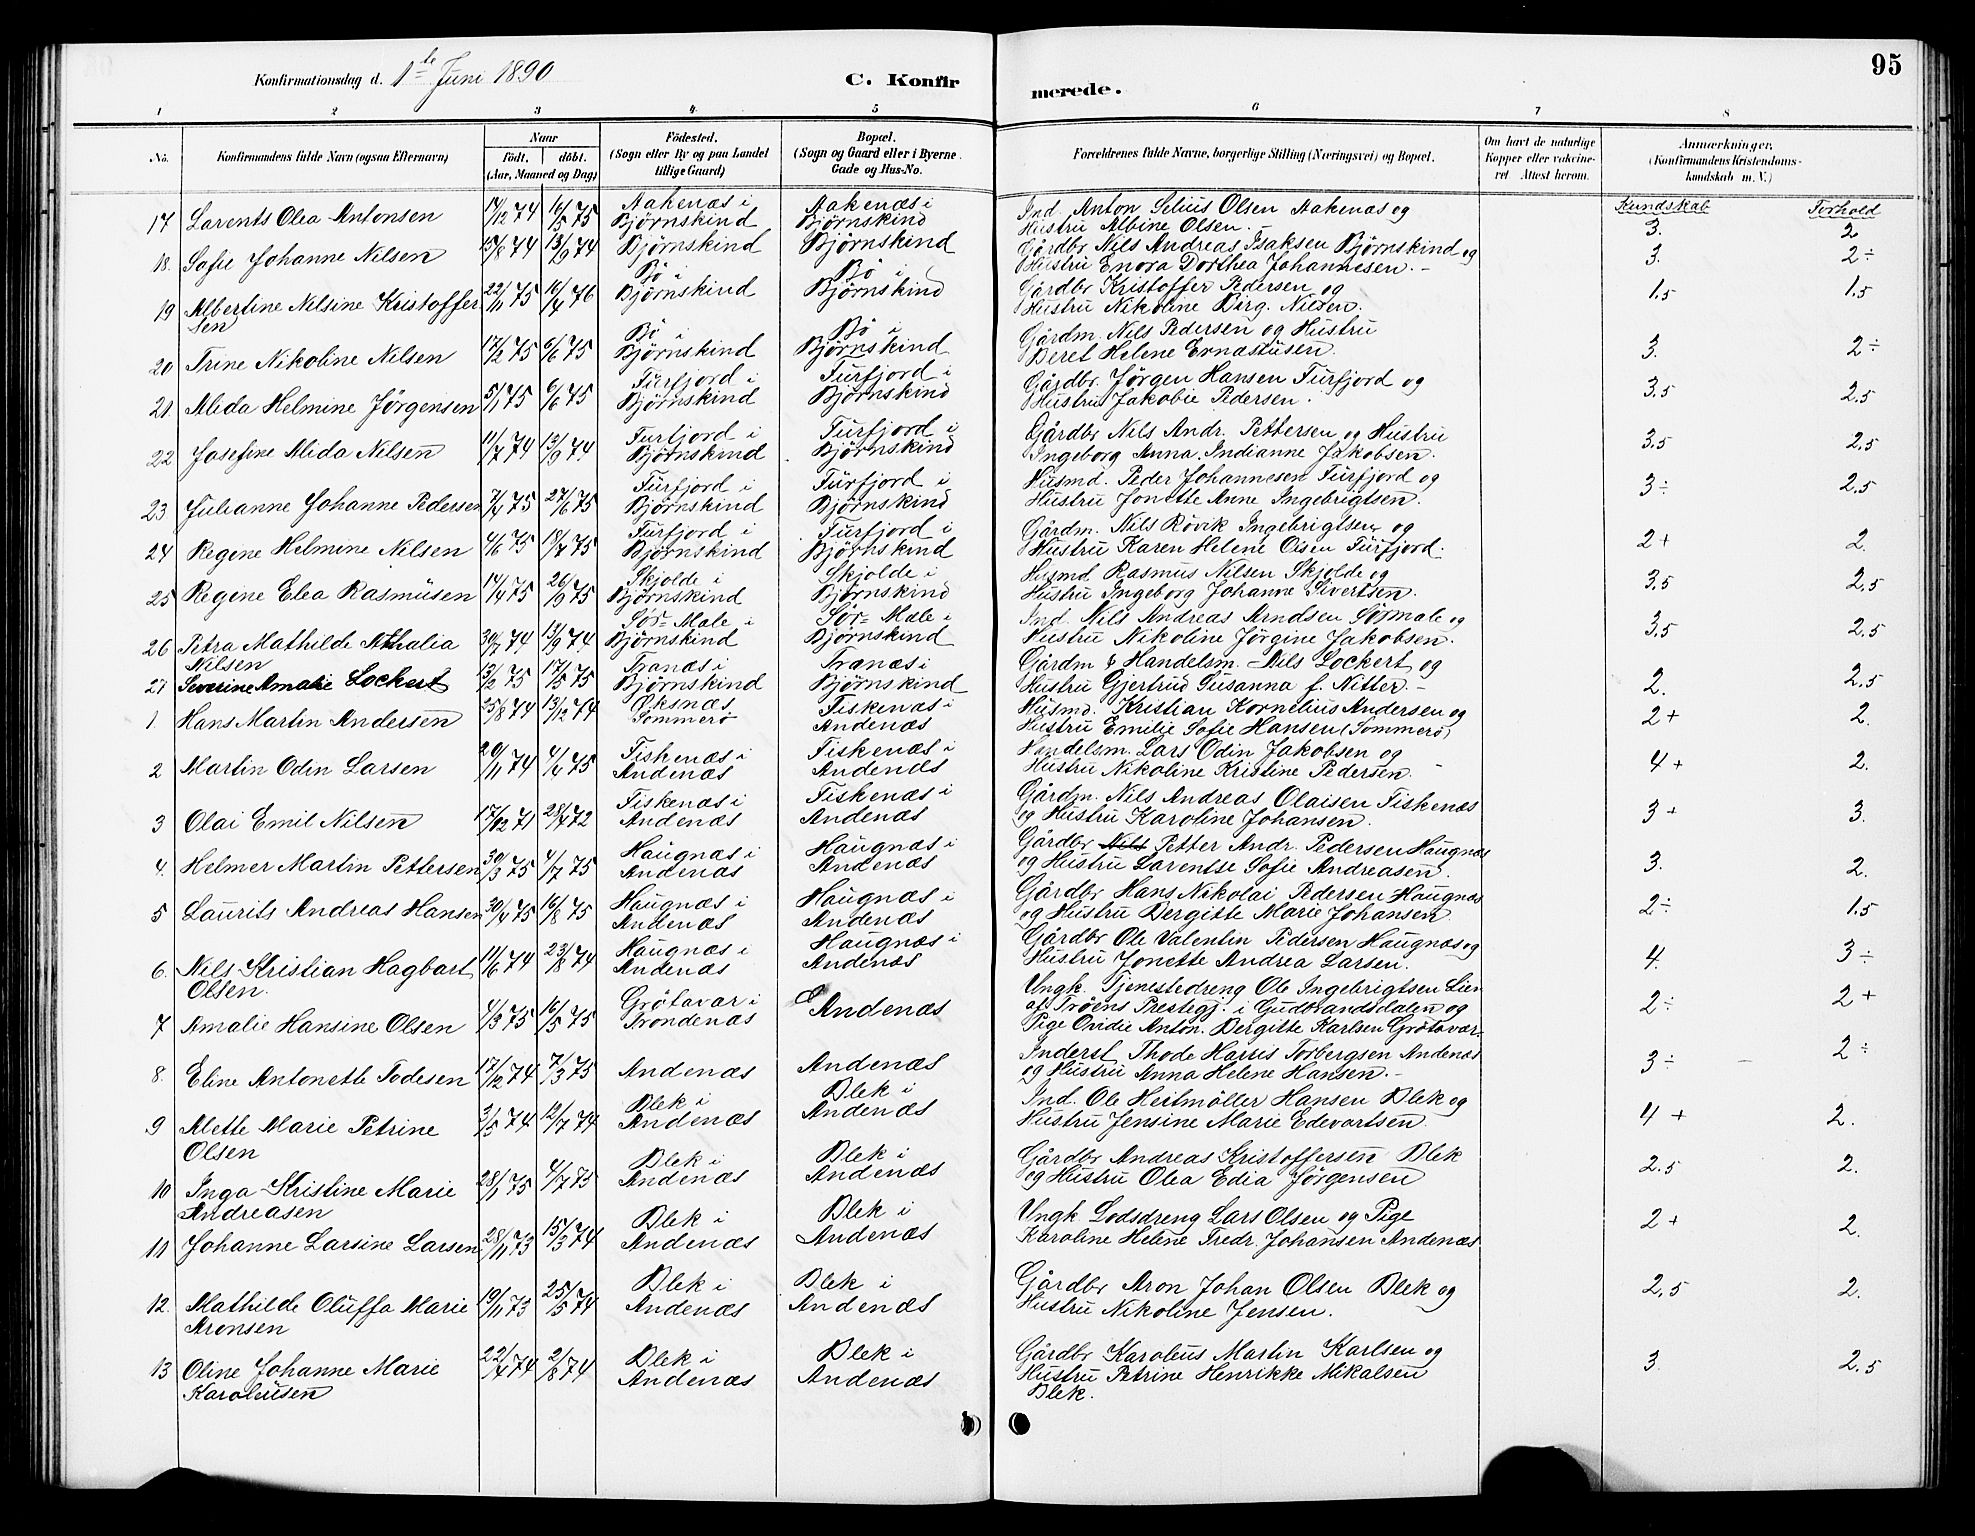 95
Konfirmationsdag d. 1ste Juni 1890 C. Konfirmerede.
1 2 3 4 5 6 7 8
No. Konfirmandens fulde Navn (ogsaa Efternavn) Naar födt. döbt. (Aar, Maaned og Dag) Födested. (Sogn eller By og paa Landet tillige Gaard) Bopæl. (Sogn og Gaard eller i Byerne Gade og Hus-No. Forældrenes fulde Navne, borgerlige Stilling (Næringsvei) og Bopæl. Om havt de naturlige Kopper eller vakcineret. Attest herom. Anmærkninger. (Konfirmandens Kristendomskundskab m. V.)
Kundskab Forhold
17 Larents Olea Antonsen 14/12 74 16/5 75 Aakenæs i Bjørnskind Aakenæs i Bjørnskind Ind. Anton Selius Olsen Aakenæs og Hustru Albine Olsen. 3. 2
18. Sofie Johanne Nilsen 25/6 74 13/9 74 Bjørnskind Bjørnskind Gårdbr Nils Andreas Isaksen Bjørnskind og Hustru Enora Dorthea Johannesen. 3. 2÷
19 Albertine Nilsine Kristoffersen 22/11 75 16/4 76 Bø i Bjørnskind Bø i Bjørnskind Gårdbr Kristoffer Pedersen og Hustru Nikoline Birg. Nilsen. 1.5 1.5
20 Trine Nikoline Nilsen 17/2 75 6/6 75 Bø i Bjørnskind Bø i Bjørnskind Gårdm. Nils Pedersen og Hustru Beret Helene Ernastüsen. 3. 2÷
21. Alida Helmine Jörgensen 5/1 75 6/6 75 Fürfjord i Bjørnskind Fürfjord i Bjørnskind Gårdbr. Jørgen Hansen Fürfjord og Hustru Jakobie Pedersen. 3.5 2.5
22 Josefine Alida Nilsen 11/7 74 13/9 74 Furfjord i Bjørnskind Fürfjord i Bjørnskind Gårdbr Nils Andr. Pettersen og Hustru Ingeborg Anna Indianne Jakobsen. 3.5 2.5
23 Julianne Johanne Pedersen 7/4 75 27/6 75 Fürfjord i Bjørnskind Fürfjord i Bjørnskind Husmd. Peder Johannesen Fürfjord og Hustru Jonette Anne Ingebrigtsen. 3÷ 2.5
24 Regine Helmine Nilsen 4/6 75 18/7 75 Fürfjord i Bjørnskind Fürfjord i Bjørnskind Gårdm. Nils Røvik Ingebrigtsen og Hustru Karen Helene Olsen Fürfjord. 2+ 2.
25 Regine Elea Rasmüsen 14/4 75 26/9 75 Skjolde i Bjørnskind Skjolde i Bjørnskind Husmd Rasmus Nilsen Skjolde og Hustru Ingeborg Johanne Sivertsen. 3.5 2.5
26 Petra Mathilde Athalia Nilsen 30/7 74 13/9 74 Sør-Male i Bjørnskind Sør-Male i Bjørnskind Ind. Nils Andreas Arndsen Sørmale og Hustru Nikoline Jørgine Jakobsen. 3.5 2.5
27 Severine Amalie Lockert 13/2 75 17/5 75 Tranæs i Bjørnskind Tranæs i Bjørnskind Gårdm & Handelsm. Nils Lockert og Hustru Gjertrud Susanna f. Nitter. 2. 2.5
1. Hans Martin Andersen 25/8 74 13/12 74 Øksnæs Sommerø Fiskenæs i Andenæs Husmd. Kristian Kornelius Andersen og Hustru Emilie Sofie Hansen (Sommerø) 2+ 2.
2 Martin Odin Larsen 20/11 74 4/4 75 Fiskenæs i Andenæs Fiskenæs i Andenæs Handelsm. Lars Odin Jakobsen og Hustru Nikoline Kristine Pedersen. 4+ 2.
3 Olai Emil Nilsen 17/12 71 28/4 72 Fiskenæs i Andenæs Fiskenæs i Andenæs Gårdm. Nils Andreas Olaisen Fiskenæs og Hustru Karoline Johansen. 3+ 3.
4. Helmer Martin Pettersen 30/3 75 4/7 75 Haugnæs i Andenæs Haugnæs i Andenæs Gårdbr Nils Petter Andr. Pedersen Haugnæs og Hustru Larentse Sofie Andreasen. 3. 2.
5 Laurits Andreas Hansen 20/4 75 16/8 75 Haugnæs i Andenæs Haugnæs i Andenæs Gårdbr Hans Nikolai Pedersen Haugnæs og Hustru Bergitte Marie Johansen. 2÷ 1.5
6. Nils Kristian Hagbart Olsen. 11/6 74 23/8 74 Haugnæs i Andenæs Haugnæs i Andenæs Gårdbr Ole Valentin Pedersen Haugnæs og Hustru Jonette Andrea Larsen. 4. 3÷
7 Amalie Hansine Olsen 4/3 75 16/5 75 Grötavær i Trondenæs Andenæs Ungk. Tjenestedreng Ole Ingebrigtsen Lien af Trøens Prestegj. i Gudbrandsdalen og Pige Ovidie Anton. Bergitte Karlsen Grøtavær. 2÷ 2+
8. Eline Antonette Todesen 17/12 74 7/3 75 Andenæs Andenæs Inderst Thode Harris Torbergsen Andenæs og Hustru Anna Helene Hansen. 3÷ 2÷
9 Mette Marie Petrine Olsen 3/5 74 12/7 74 Blek i Andenæs Blek i Andenæs Ind. Ole Heitmöller Hansen Blek og Hustru Jensine Marie Edevartsen. 4+ 2.
10 Inga Kristine Marie Andreasen 28/1 75 4/7 75 Blek i Andenæs Blek i Andenæs Gårdbr Andreas Kristoffersen Blek og Hustru Olea Edia Jørgensen 2.5 2.
11 Johanne Larsine Larsen 28/11 73 15/3 74 Blek i Andenæs Blek i Andenæs Ungk Lodsdreng Lars Olsen og Pige Karoline Helene Fredr. Johansen Andenæs. 2+ 2.
12. Mathilde Olüffa Marie Aronsen 19/11 73 25/5 74 Blek i Andenæs Blek i Andenæs Gårdbr Aron Johan Olsen Blek og Hustru Nikoline Jensen. 2.5 2.
13 Oline Johanne Marie Karoliüsen 22/4 74 2/8 74 Blek i Andenæs Blek i Andenæs Gårdbr Karoleus Martin Karlsen og Hustru Petrine Henrikke Mikalsen Blek. 3. 2.5